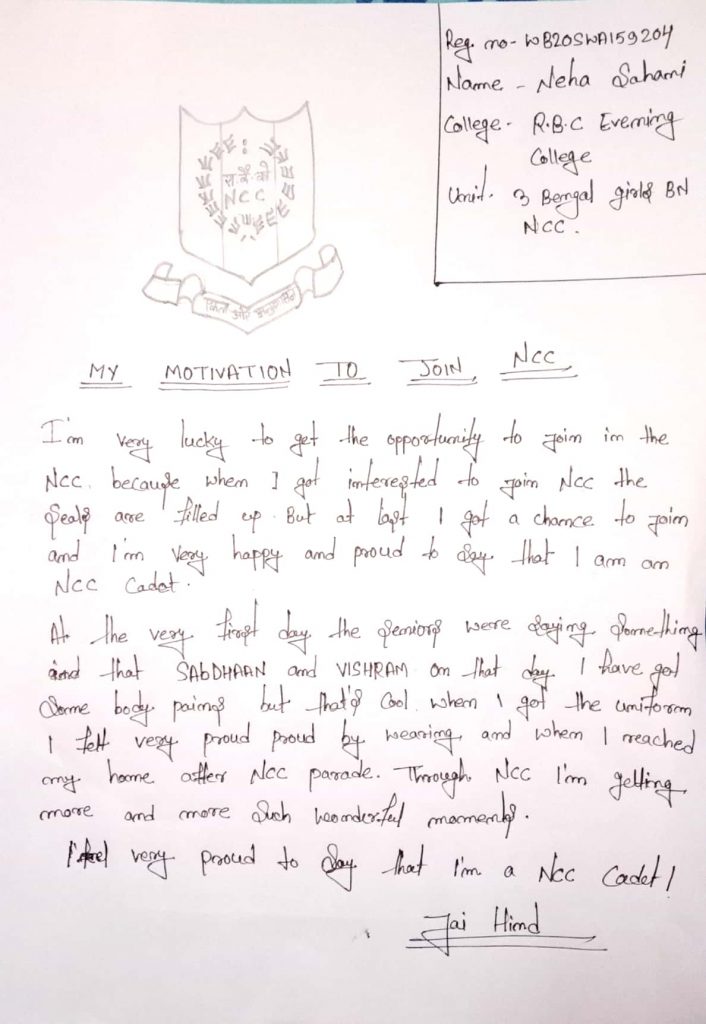 Reg. no- WB20SWA159204
Name - Neha Sahani
College- R.B.C Evening
College
Unit. 3 Bengal girls BN
NCC.
रा. कै. को
NCC
एकता और अनुशासन
MY MOTIVATION TO JOIN NCC
I'm very lucky to get the opportunity to join in the
NCC. because when I got interested to join NCC the
seats are filled up. But at last I got a chance to join
and I'm very happy and proud to say that I am an
NCC Cadet.
At the very first day the seniors were saying something
and that SABDHAAN and VISHRAM on that day I have got
some body pains but that's cool. when I got the uniform
I felt very proud proud by wearing and when I reached
my home after NCC parade. Through NCC I'm getting
more and more such wonderful moments.
I feel very proud to say that I'm a NCC Cadet!
Jai Hind